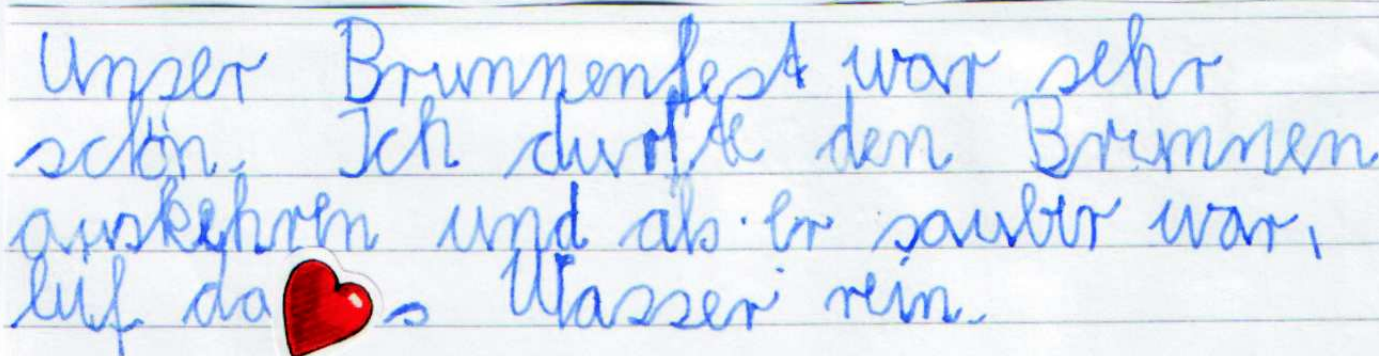 Unser Brunnenfest war sehr
schön. Ich durfte den Brunnen
auskehren und als er sauber war,
lief das Wasser rein.